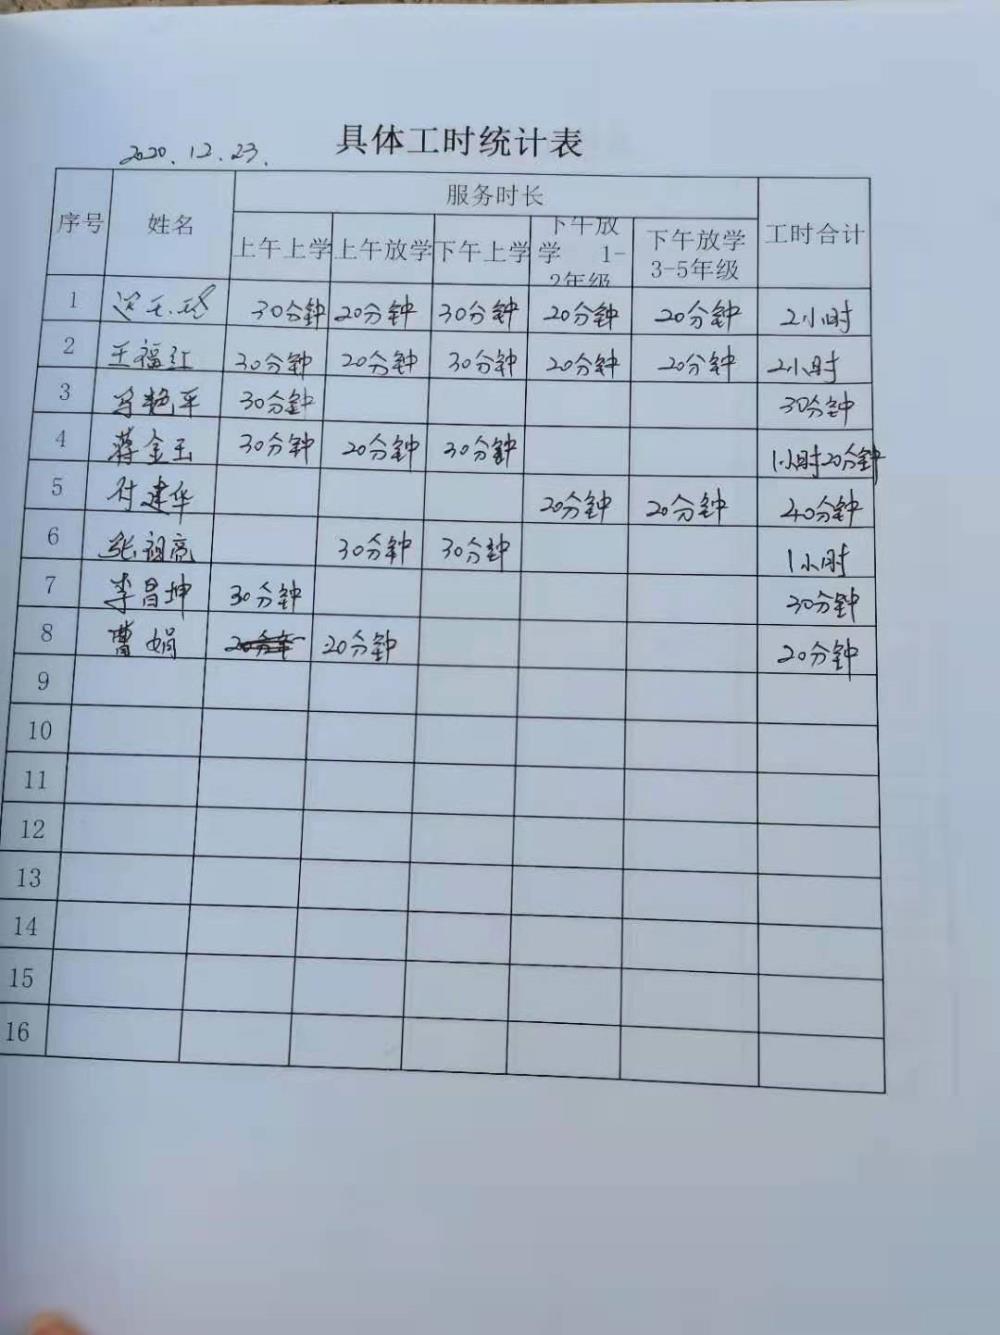 具体工时统计表
2020.12.23.
序号 姓名 服务时长 工时合计
上午上学 上午放学 下午上学 下午放学 1-2年级 下午放学 3-5年级
1 30分钟 20分钟 30分钟 20分钟 20分钟 2小时
2 王福红 30分钟 20分钟 30分钟 20分钟 20分钟 2小时
3 马艳平 30分钟 30分钟
4 蒋金玉 30分钟 20分钟 30分钟 1小时20分钟
5 付建华 20分钟 20分钟 40分钟
6 30分钟 30分钟 1小时
7 李昌坤 30分钟 30分钟
8 曹娟 20分钟 20分钟
9
10
11
12
13
14
15
16